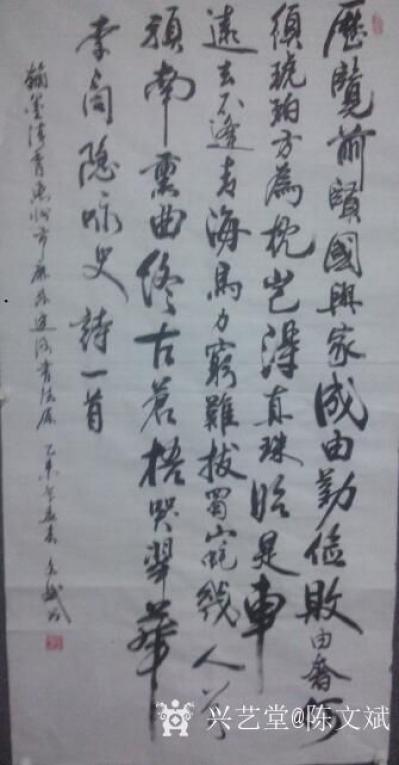 歷覽前賢國與家成由勤儉敗由奢何
須琥珀方為枕豈得真珠始是車
遠去不逢青海馬力窮難拔蜀山蛇幾人曾
預南熏曲終古蒼梧哭翠華
李商隱詠史詩一首
翰墨清香惠州市廉政建设書法展 乙未年孟春 文斌
兴艺堂@陈文斌